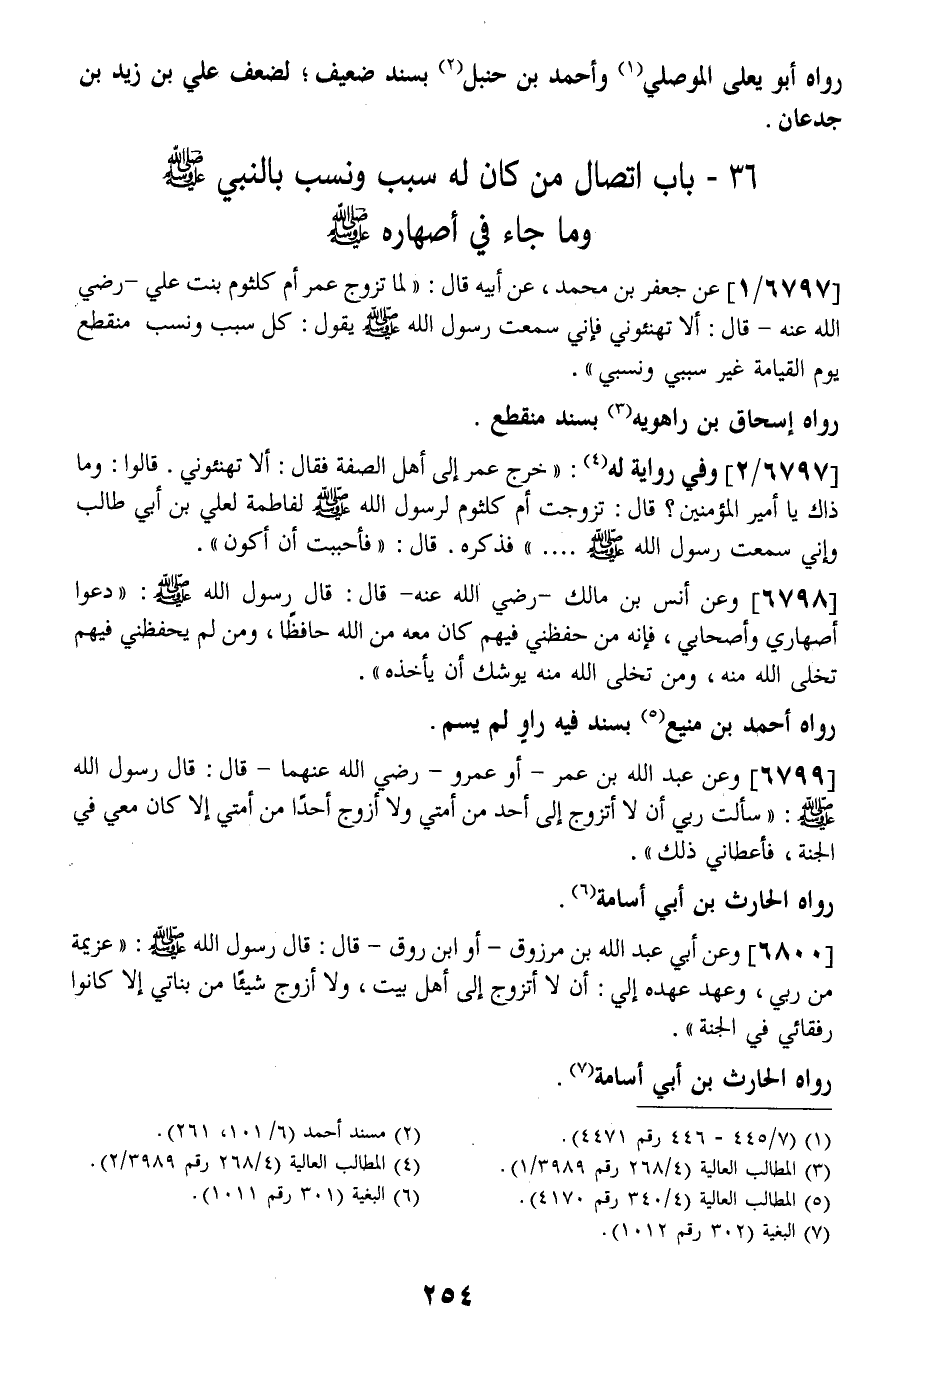 رواه أبو يعلى الموصلي(١) وأحمد بن حنبل(٢) بسند ضعيف ؛ لضعف علي بن زيد بن
جدعان .
٣٦ - باب اتصال من كان له سبب ونسب بالنبي ﷺ
وما جاء في أصهاره ﷺ
[١/٦٧٩٧] عن جعفر بن محمد ، عن أبيه قال : « لما تزوج عمر أم كلثوم بنت علي -رضي
الله عنه - قال : ألا تهنئوني فإني سمعت رسول الله ﷺ يقول : كل سبب ونسب منقطع
يوم القيامة غير سببي ونسبي » .
رواه إسحاق بن راهويه(٣) بسند منقطع .
[٢/٦٧٩٧] وفي رواية له(٤) : « خرج عمر إلى أهل الصفة فقال : ألا تهنئوني . قالوا : وما
ذاك يا أمير المؤمنين ؟ قال : تزوجت أم كلثوم لرسول الله ﷺ لفاطمة لعلي بن أبي طالب
وإني سمعت رسول الله ﷺ .... » فذكره . قال : « فأحببت أن أكون » .
[٦٧٩٨] وعن أنس بن مالك -رضي الله عنه- قال : قال رسول الله ﷺ : « دعوا
أصهاري وأصحابي ، فإنه من حفظني فيهم كان معه من الله حافظًا ، ومن لم يحفظني فيهم
تخلى الله منه ، ومن تخلى الله منه يوشك أن يأخذه » .
رواه أحمد بن منيع(٥) بسند فيه راوٍ لم يسم .
[٦٧٩٩] وعن عبد الله بن عمر - أو عمرو - رضي الله عنهما - قال : قال رسول الله
ﷺ : « سألت ربي أن لا أتزوج إلى أحد من أمتي ولا أزوج أحدًا من أمتي إلا كان معي في
الجنة ، فأعطاني ذلك » .
رواه الحارث بن أبي أسامة(٦) .
[٦٨٠٠] وعن أبي عبد الله بن مرزوق - أو ابن روق - قال : قال رسول الله ﷺ : « عزيمة
من ربي ، وعهد عهده إلي : أن لا أتزوج إلى أهل بيت ، ولا أزوج شيئًا من بناتي إلا كانوا
رفقائي في الجنة » .
رواه الحارث بن أبي أسامة(٧) .
(١) (٧/ ٤٤٥ - ٤٤٦ رقم ٤٤٧١).
(٢) مسند أحمد (٦/ ١٠١، ٢٦١).
(٣) المطالب العالية (٤/ ٢٦٨ رقم ١/٣٩٨٩).
(٤) المطالب العالية (٤/ ٢٦٨ رقم ٢/٣٩٨٩).
(٥) المطالب العالية (٤/ ٣٤٠ رقم ٤١٧٠).
(٦) البغية (٣٠١ رقم ١٠١١).
(٧) البغية (٣٠٢ رقم ١٠١٢).
٢٥٤